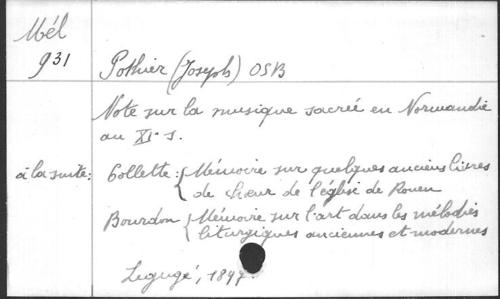 Mél
931
Pothier (Joseph) OSB
Note sur la musique sacrée en Normandie
au XIe s.
à la suite: Collette: { Mémoire sur quelques anciens livres
de chœur de l'église de Rouen
Bourdon { Mémoire sur l'art dans les mélodies
liturgiques anciennes et modernes
Ligugé, 1897.